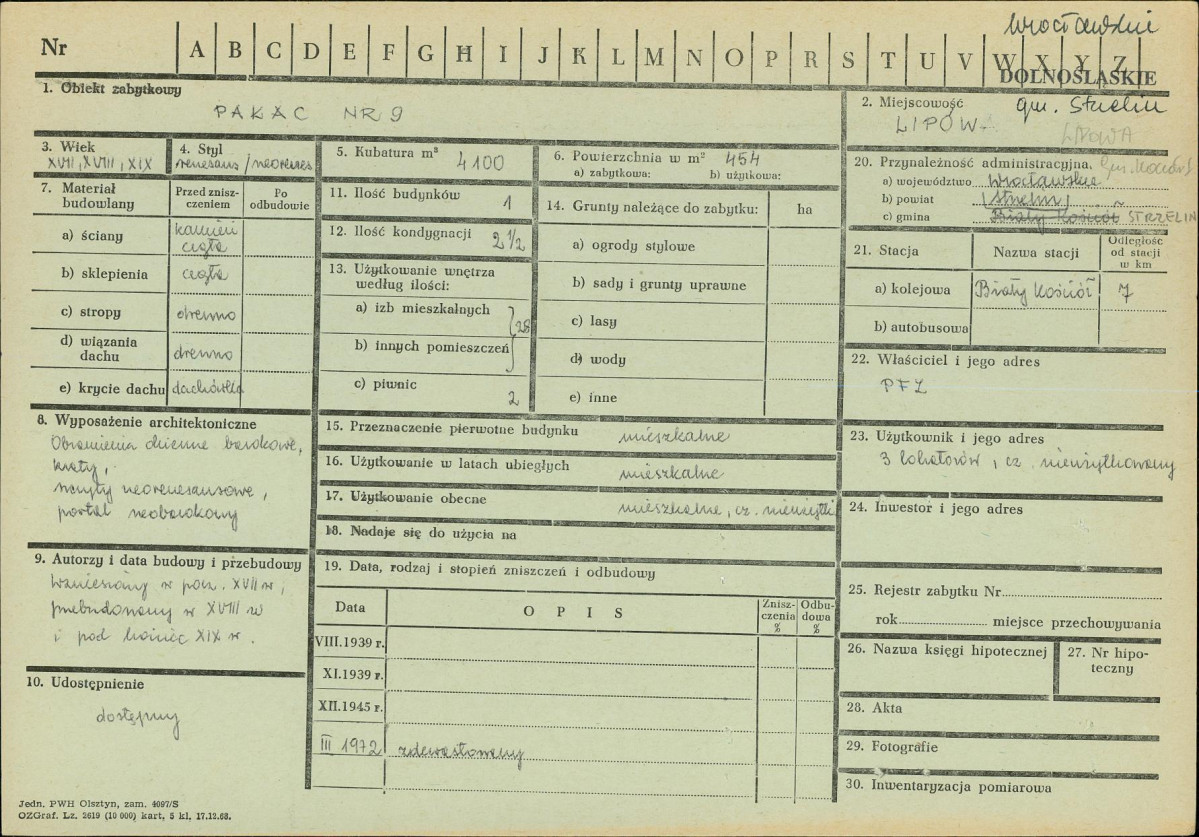 wrocławskie
Nr A B C D E F G H I J K L M N O P R S T U V W X Y Z
DOLNOŚLĄSKIE
1. Obiekt zabytkowy
PAŁAC NR 9
2. Miejscowość gm. Strzelin
LIPOWA
LIPOWA
3. Wiek
XVII, XVIII, XIX
4. Styl
renesans/neorenes
5. Kubatura m³ 4100
6. Powierzchnia w m² 454
a) zabytkowa: b) użytkowa:
7. Materiał budowlany
Przed zniszczeniem
Po odbudowie
a) ściany kamień cegła
b) sklepienia cegła
c) stropy drewno
d) wiązania dachu drewno
e) krycie dachu dachówka
8. Wyposażenie architektoniczne
Obramienia okienne barokowe,
kraty,
szczyty neorenesansowe,
portal neobarokowy
9. Autorzy i data budowy i przebudowy
Wzniesiony w pocz. XVII w,
przebudowany w XVIII w
i pod koniec XIX w.
10. Udostępnienie
dostępny
11. Ilość budynków 1
12. Ilość kondygnacji 2 1/2
13. Użytkowanie wnętrza
według ilości:
a) izb mieszkalnych
28
b) innych pomieszczeń
c) piwnic 2
14. Grunty należące do zabytku: ha
a) ogrody stylowe
b) sady i grunty uprawne
c) lasy
d) wody
e) inne
15. Przeznaczenie pierwotne budynku mieszkalne
16. Użytkowanie w latach ubiegłych mieszkalne
17. Użytkowanie obecne mieszkalne, cz. nieużytk
18. Nadaje się do użycia na
19. Data, rodzaj i stopień zniszczeń i odbudowy
Data O P I S Zniszczenia % Odbudowa %
VIII.1939 r.
XI.1939 r.
XII.1945 r.
III 1972 zdewastowany
20. Przynależność administracyjna
a) województwo Wrocławskie
b) powiat Strzelin
c) gmina Biały Kościół STRZELIN
21. Stacja Nazwa stacji Odległość od stacji w km
a) kolejowa Biały Kościół 7
b) autobusowa
22. Właściciel i jego adres
PFZ
23. Użytkownik i jego adres
3 lokatorów, cz. nieużytkowany
24. Inwestor i jego adres
25. Rejestr zabytku Nr
rok miejsce przechowywania
26. Nazwa księgi hipotecznej
27. Nr hipoteczny
28. Akta
29. Fotografie
30. Inwentaryzacja pomiarowa
Jedn. PWH Olsztyn, zam. 4097/S
OZGraf. Lz. 2619 (10 000) kart, 5 kl, 17.12.68.